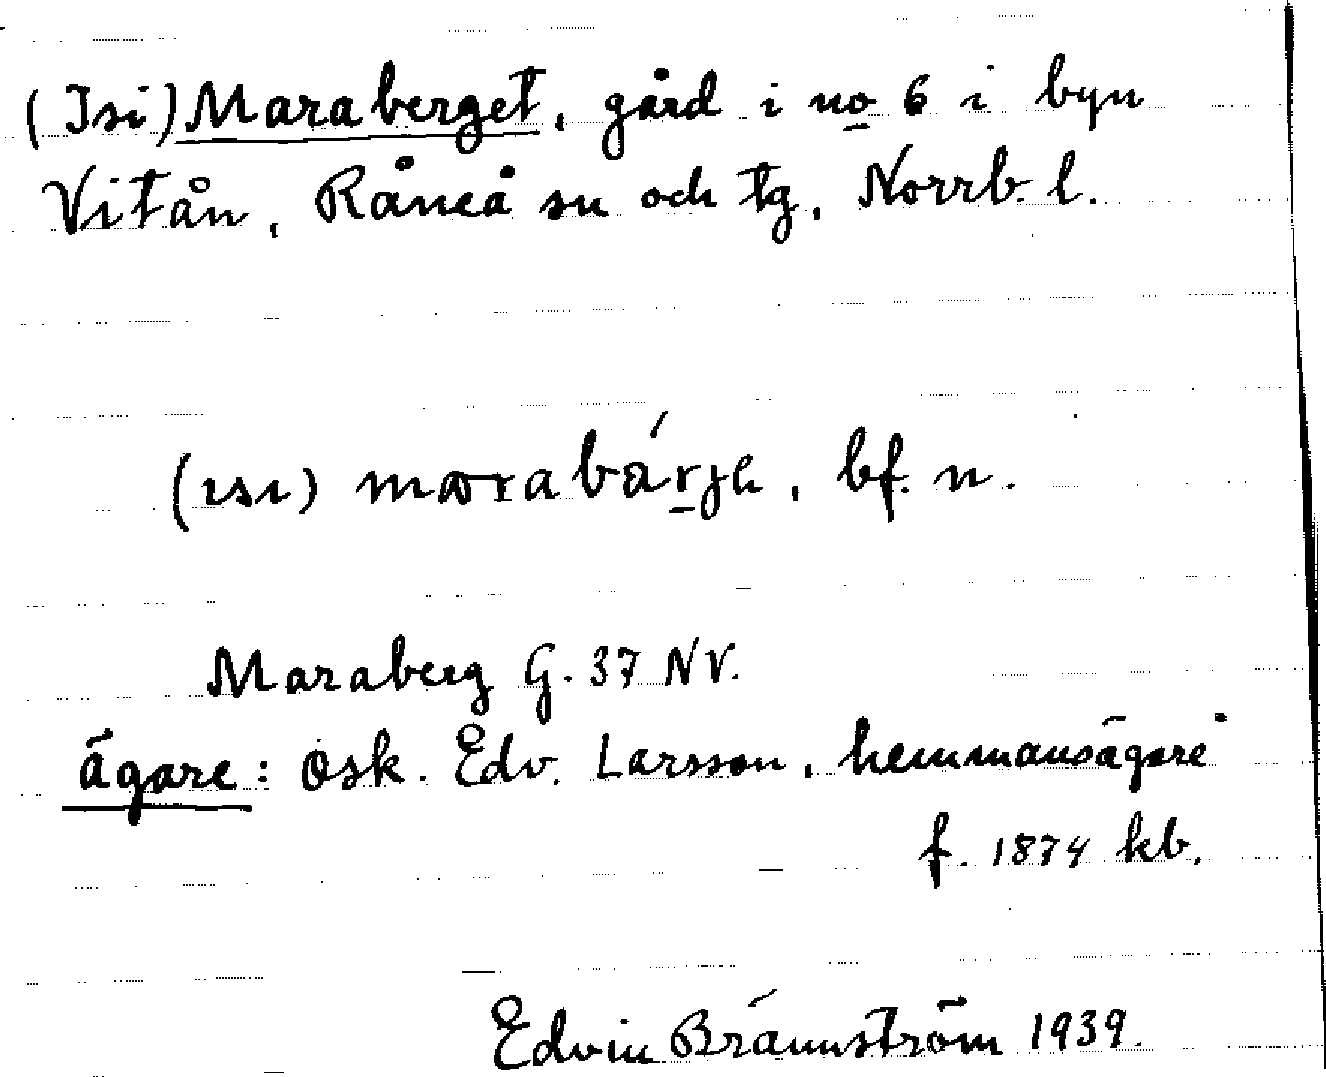 (Isi) Maraberget, gård i no 6 i byn
Vitån, Råneå sn och tg, Norrb. l.
(ısı) marabárje, bf. n.
Maraberg G. 37 NV.
ägare: Osk. Edv. Larsson, hemmansägare
f. 1874 kb.
Edvin Brännström 1939.